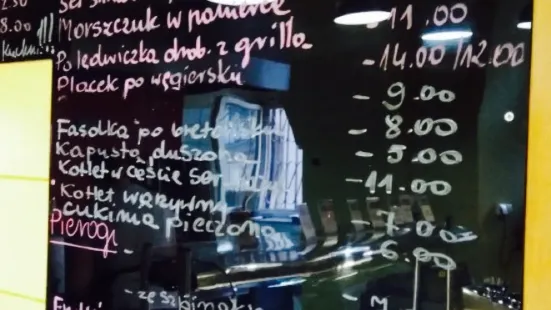 8.00
Morszczuk w panierce - 11.00
Polędwiczka drob. z grilla - 14.00/12.00
Placek po węgiersku - 9.00
Fasolka po bretońsku - 8.00
Kapusta duszona - 5.00
Kotlet w cieście ser - 11.00
Kotlet warzywny - 7.00
cukinia pieczona 6.00
Pierogi
- ze szpinak